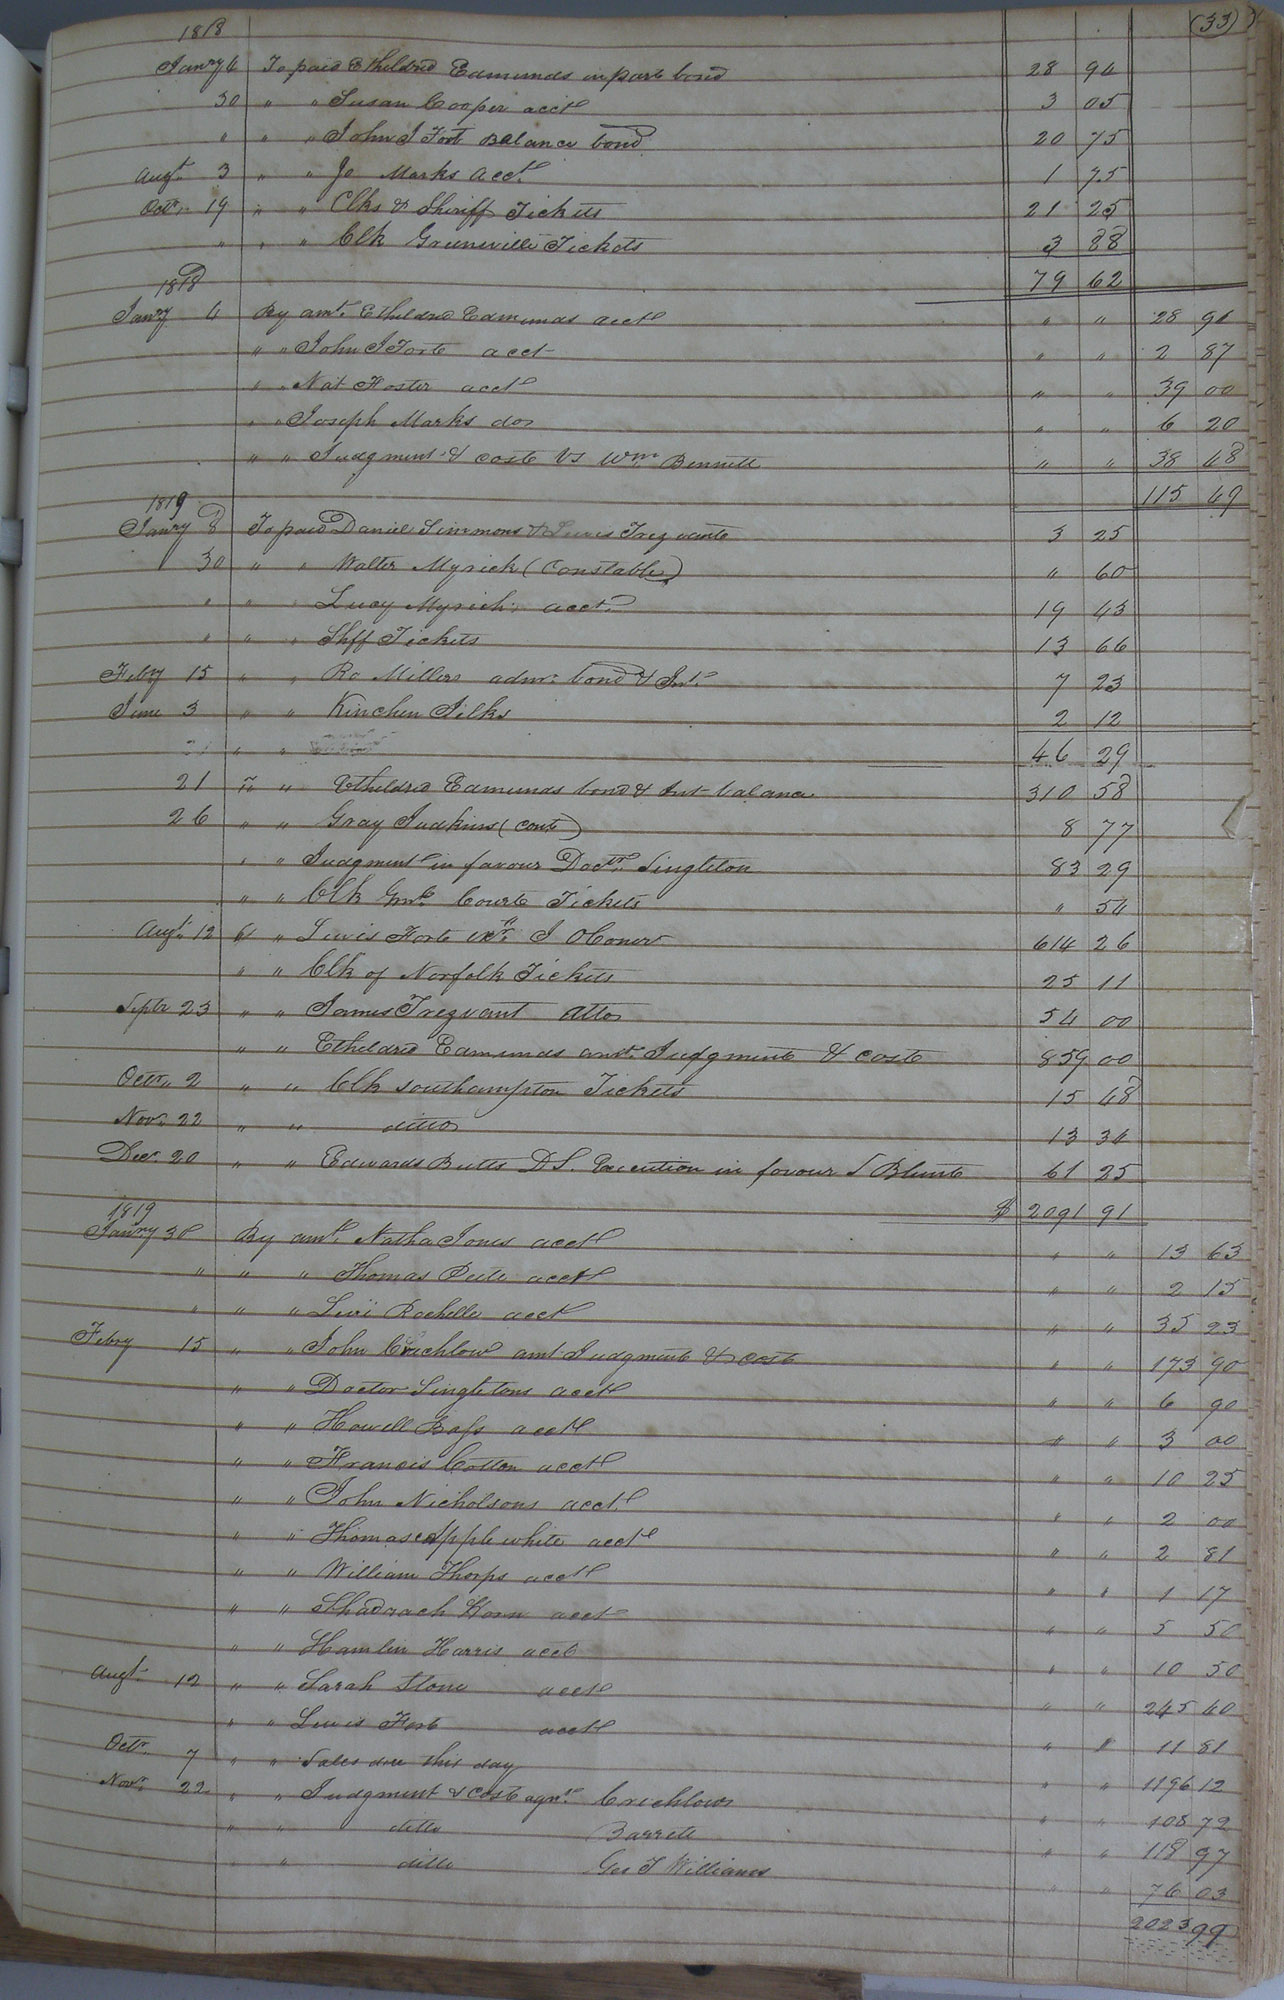 (33)
1818
Janry 4 To paid Etheldred Edmunds in part bond 28 94
30 " " Susan Cooper acct 3 05
" " " John J Fort Balance bond 20 75
Augt. 3 " " Jo Marks acct. 1 75
Octr. 19 " " Clks & Sheriff Tickets 21 25
" " " Clk Greensville Tickets 3 88
79 62
1818
Janry 4 By amt. Etheldred Edmunds acct " " 28 94
" " John J Forte acct " " 2 87
" " Nat Foster acct " " 39 00
" " Joseph Marks do " " 6 20
" " Judgment & cost vs Wm. Bennett " " 38 48
115 49
1819
Janry 8 To paid Daniel Simmons & Lewis Trezvante 3 25
30 " " Walter Myrick (Constable) " 60
" " " Lucy Myrick acct. 19 43
" " " Shff Tickets 13 66
Feby 15 " " Ro Millers admr. bond & Int. 7 23
June 3 " " Kinchen Jilks 2 12
21 " " 46 29
21 " " Etheldred Edmunds bond & Int balance 310 58
26 " " Gray Judkins (cont) 8 77
" " Judgment in favour Doctr. Singleton 83 29
" " Clk Courts Tickets " 54
Augt. 12 " " Lewis Forte J OConor 614 26
" " Clk of Norfolk Tickets 25 11
Septr 23 " " James Trezvant Atto 54 00
" " Etheldred Edmunds amt. Judgment & cost 859 00
Octr. 2 " " Clk Southampton Tickets 15 48
Nov. 22 " " ditto 13 34
Dec. 20 " " Edwards Butts D S. Execution in favour S Blunt 61 25
$ 2091 91
1819
Janry 30 By amt. Natha Jones acct " " 13 63
" " " Thomas Pete acct " " 2 15
" " " Levi Rochelle acct " " 35 23
Febry 15 " " John Crichlow amt Judgment & cost " " 173 90
" " Doctor Singletons acct " " 6 90
" " Howell Bass acct " " 3 00
" " Francis Cotton acct " " 10 25
" " John Nicholsons acct. " " 2 00
" " Thomas Applewhite acct " " 2 81
" " William Thorps acct " " 1 17
" " Shadrach Korn acct " " 5 50
" " Hamlin Harris acct " " 10 50
Augt. 12 " " Sarah Stone acct " " 245 40
" " Lewis Fort acct " " 11 81
Octr. 7 " " Sales due this day " " 1196 12
Novr. 22 " " Judgment & Cost agnst. Crichlow " " 108 72
" " ditto Barrett " " 118 97
" " ditto Geo T Williams " " 76 03
2023 99